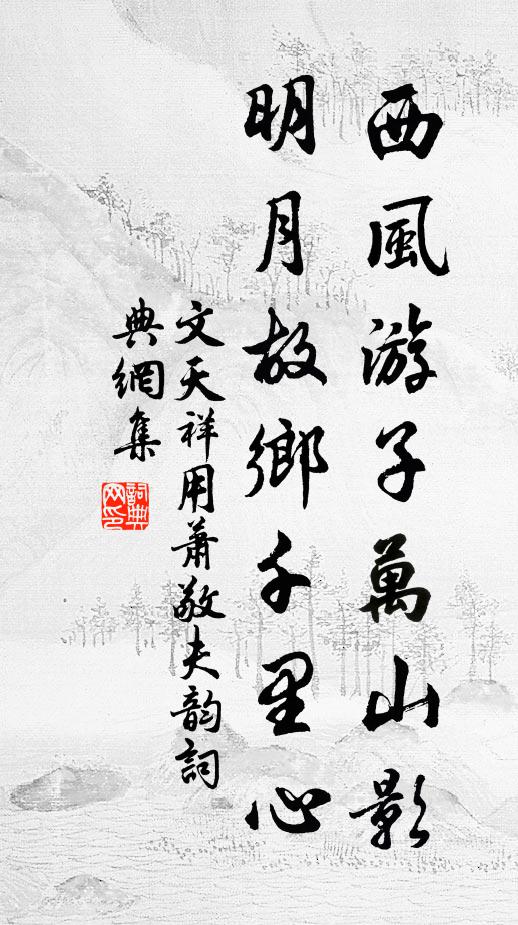 西風游子萬山影
明月故鄉千里心
文天祥用蕭敬夫韵詞
典網集
詞典
网印